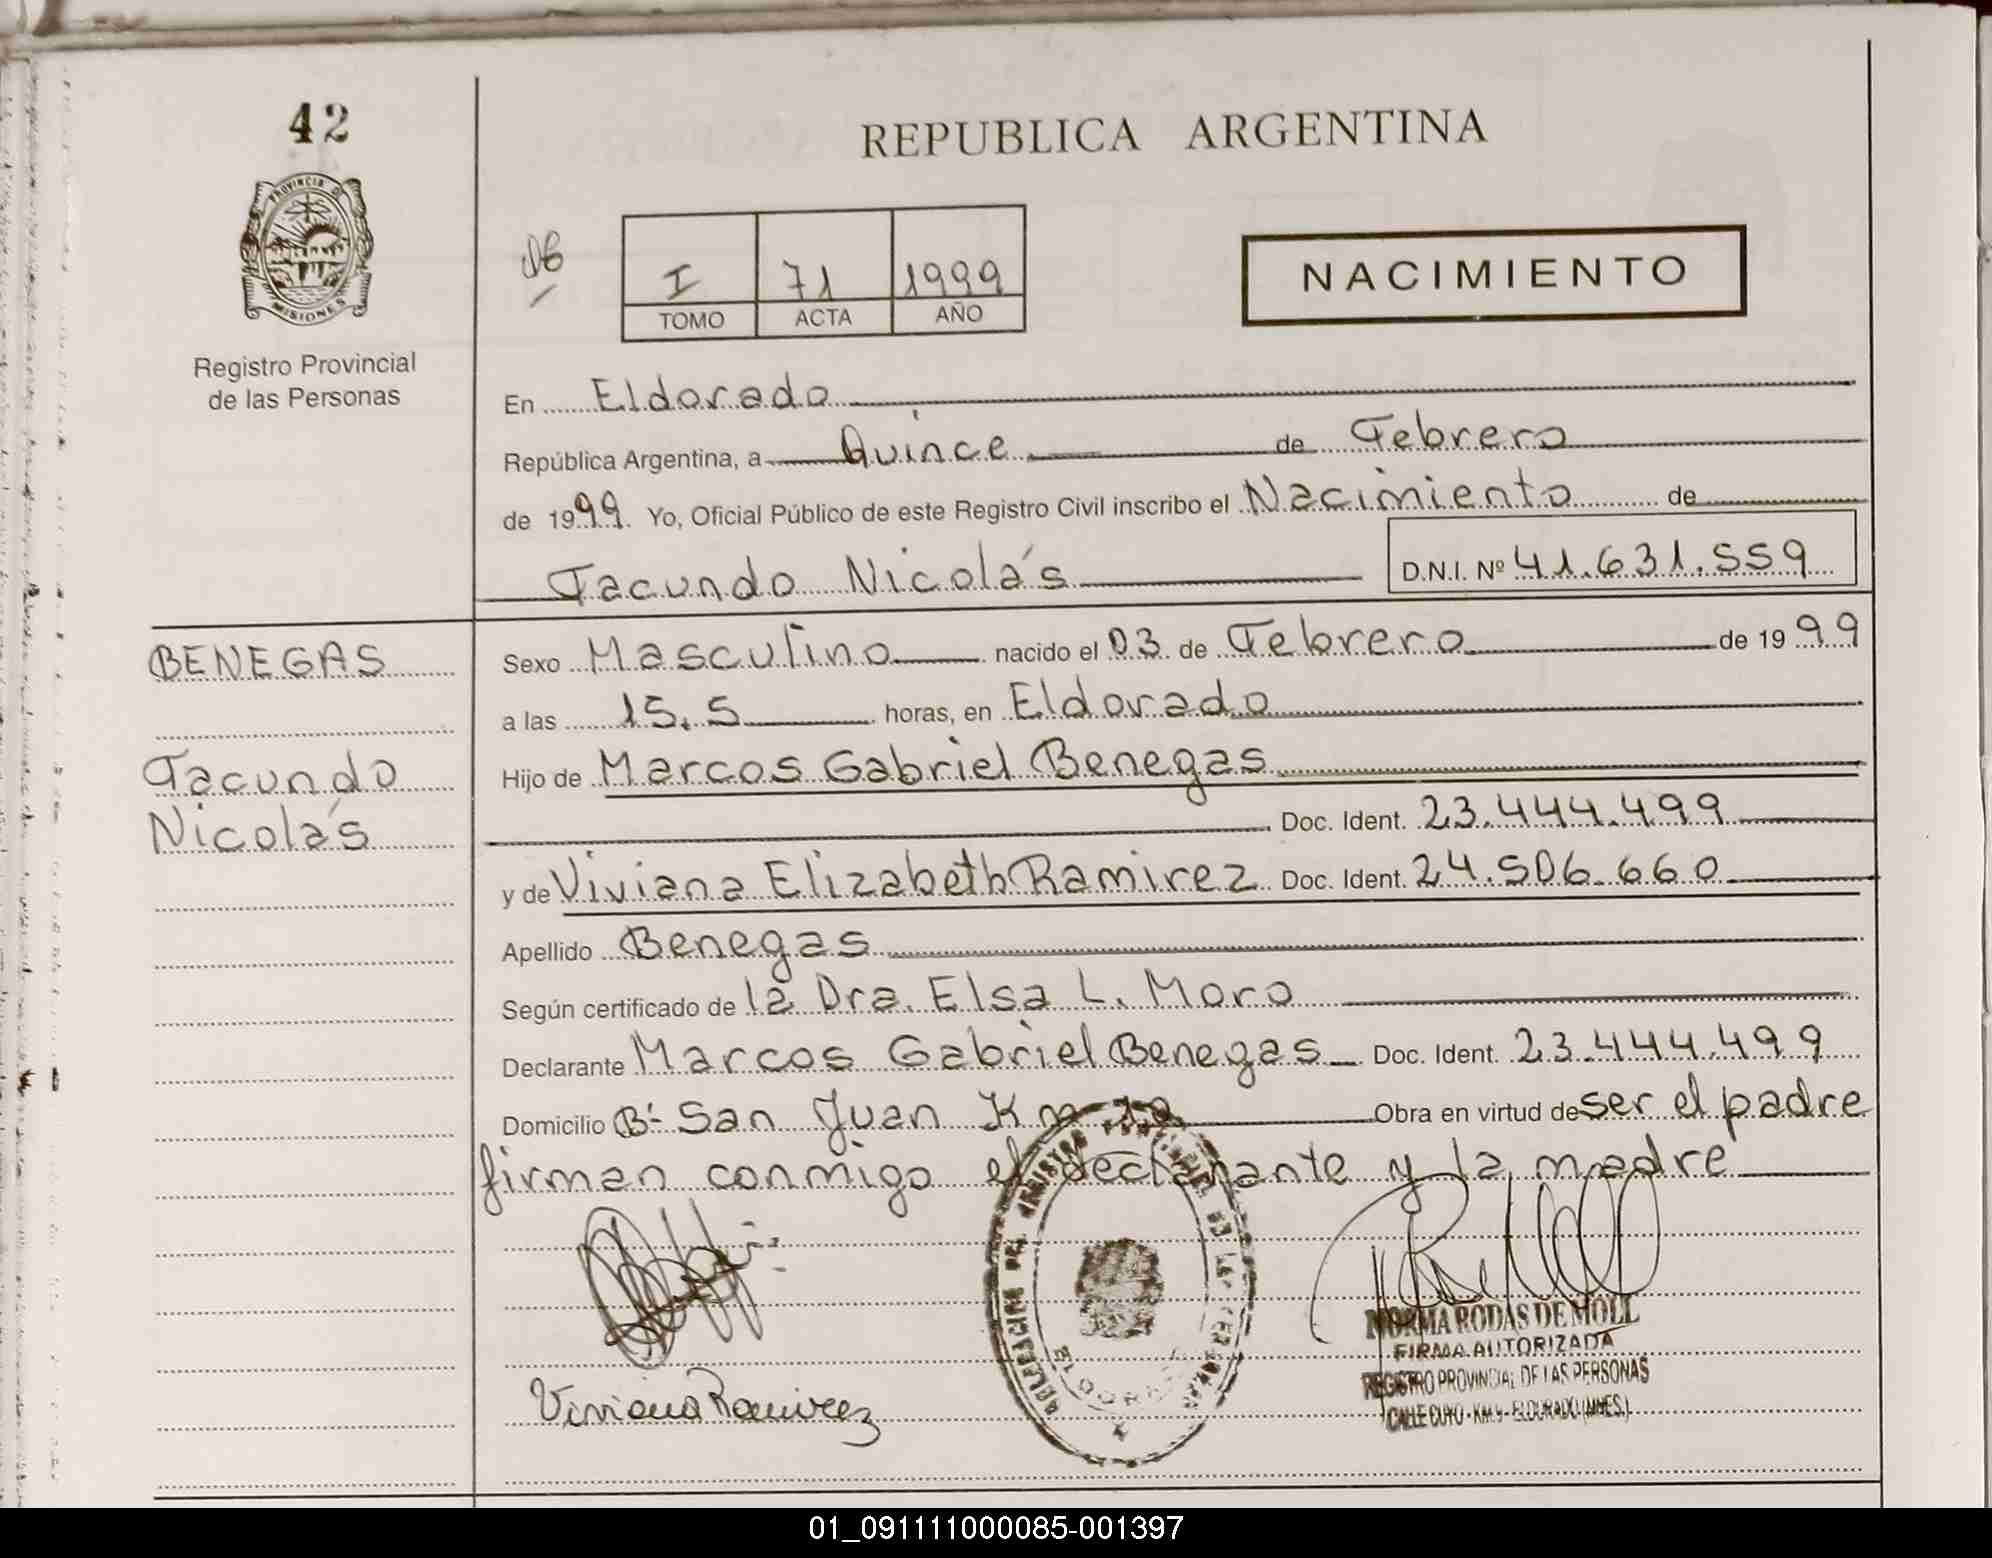 42
REPUBLICA ARGENTINA
PROVINCIA D
MISIONES
Registro Provincial
de las Personas
I 71 1999
TOMO ACTA AÑO
NACIMIENTO
En Eldorado
República Argentina, a Quince de Febrero
de 1999. Yo, Oficial Público de este Registro Civil inscribo el Nacimiento de
Facundo Nicolás D.N.I. Nº 41.631.559
BENEGAS
Facundo
Nicolás
Sexo Masculino nacido el 03 de Febrero de 1999
a las 15.5 horas, en Eldorado
Hijo de Marcos Gabriel Benegas
Doc. Ident. 23.444.499
y de Viviana Elizabeth Ramirez Doc. Ident. 24.506.660
Apellido Benegas
Según certificado de la Dra. Elsa L. Moro
Declarante Marcos Gabriel Benegas Doc. Ident. 23.444.499
Domicilio B: San Juan Km 10 Obra en virtud de ser el padre
firman conmigo el declarante y la madre
Viviana Ramirez
DELEGACION DEL REGISTRO PROVINCIAL DE LAS PERSONAS
ELDORADO
NORMA RODAS DE MOLL
FIRMA AUTORIZADA
REGISTRO PROVINCIAL DE LAS PERSONAS
CALLE CUYO - KM. 9 - ELDORADO (MNES.)
01_091111000085-001397